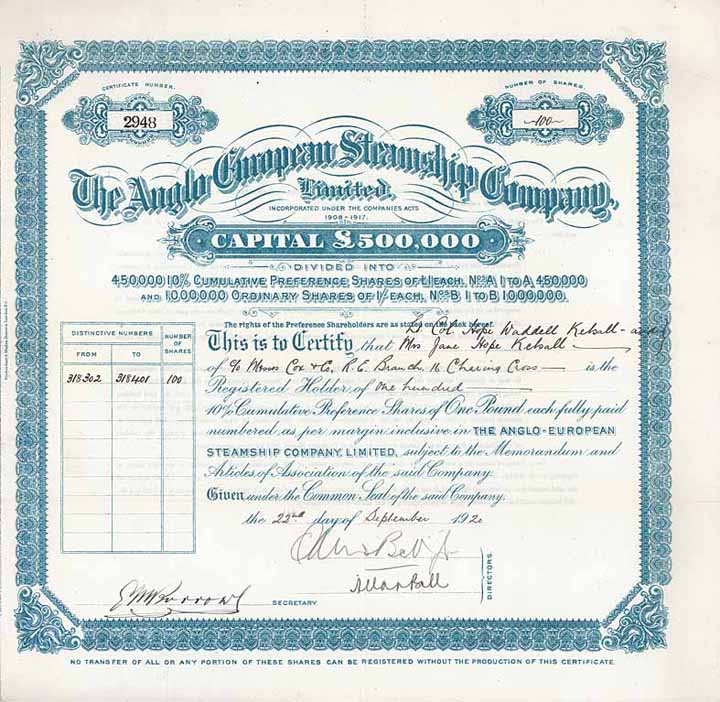 CERTIFICATE NUMBER.
2948
NUMBER OF SHARES.
100
The Anglo European Steamship Company,
Limited.
INCORPORATED UNDER THE COMPANIES ACTS
1908-1917.
CAPITAL £500,000
DIVIDED INTO
450,000 10% CUMULATIVE PREFERENCE SHARES OF £1 EACH, Nos A 1 TO A 450,000
AND 1,000,000 ORDINARY SHARES OF 1/- EACH, Nos B 1 TO B 1,000,000.
The rights of the Preference Shareholders are as stated on the back hereof.
DISTINCTIVE NUMBERS
NUMBER OF SHARES
FROM
TO
318302 318401 100
Lt Col. Hope Waddell Kelsall - and
This is to Certify that Mrs Jane Hope Kelsall
of c/o Messrs Cox & Co, R.E. Branch 16 Charing Cross is the
Registered Holder of One hundred
10% Cumulative Preference Shares of One Pound each fully paid
numbered as per margin inclusive in THE ANGLO-EUROPEAN
STEAMSHIP COMPANY, LIMITED, subject to the Memorandum and
Articles of Association of the said Company.
Given under the Common Seal of the said Company,
the 22nd day of September 1920
DIRECTORS.
SECRETARY.
NO TRANSFER OF ALL OR ANY PORTION OF THESE SHARES CAN BE REGISTERED WITHOUT THE PRODUCTION OF THIS CERTIFICATE.